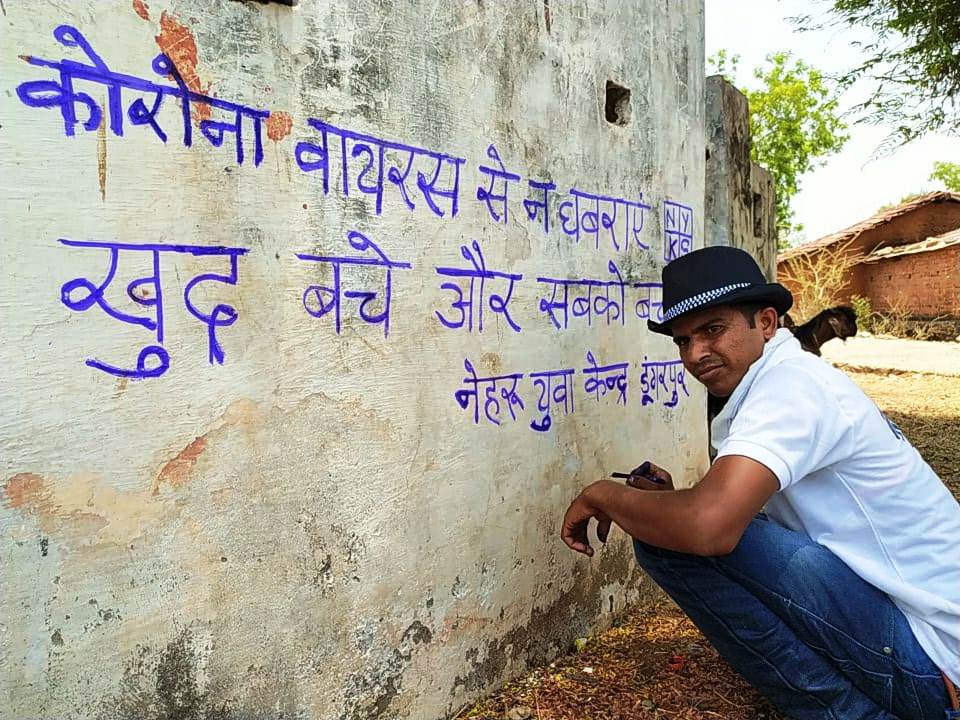 कोरोना वायरस से न घबराएं NYKS
खुद बचे और सबको
नेहरू युवा केन्द्र डूंगरपुर